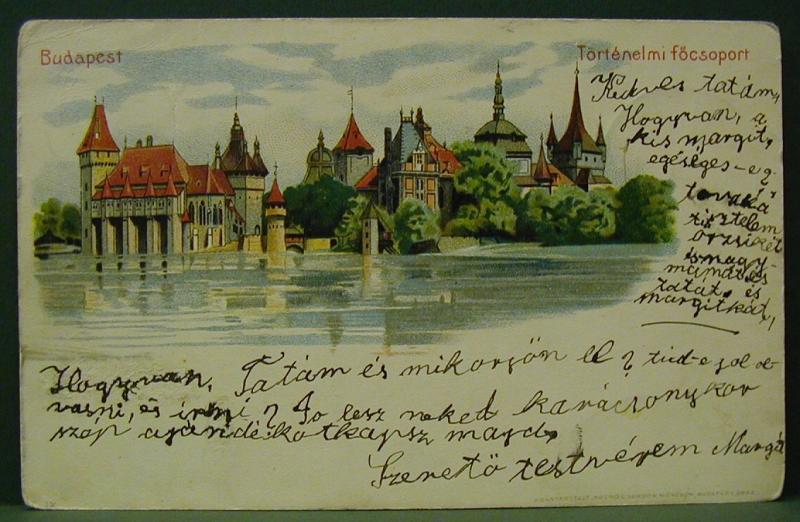 Budapest
Történelmi főcsoport
Kedves tatám,
Hogyvan, a
kis margit,
egéséges-e?
továbá
tisztelem
örzsikét
ésnagy-
mámat és
tatát, és
margitkát,
Hogyvan, Tatám és mikorjön el? tud-e jol ol
vasni, és irni? Jo lesz neked karácsonykor
szép ajándékotkapsz majd.
Szerető testvérem Margit